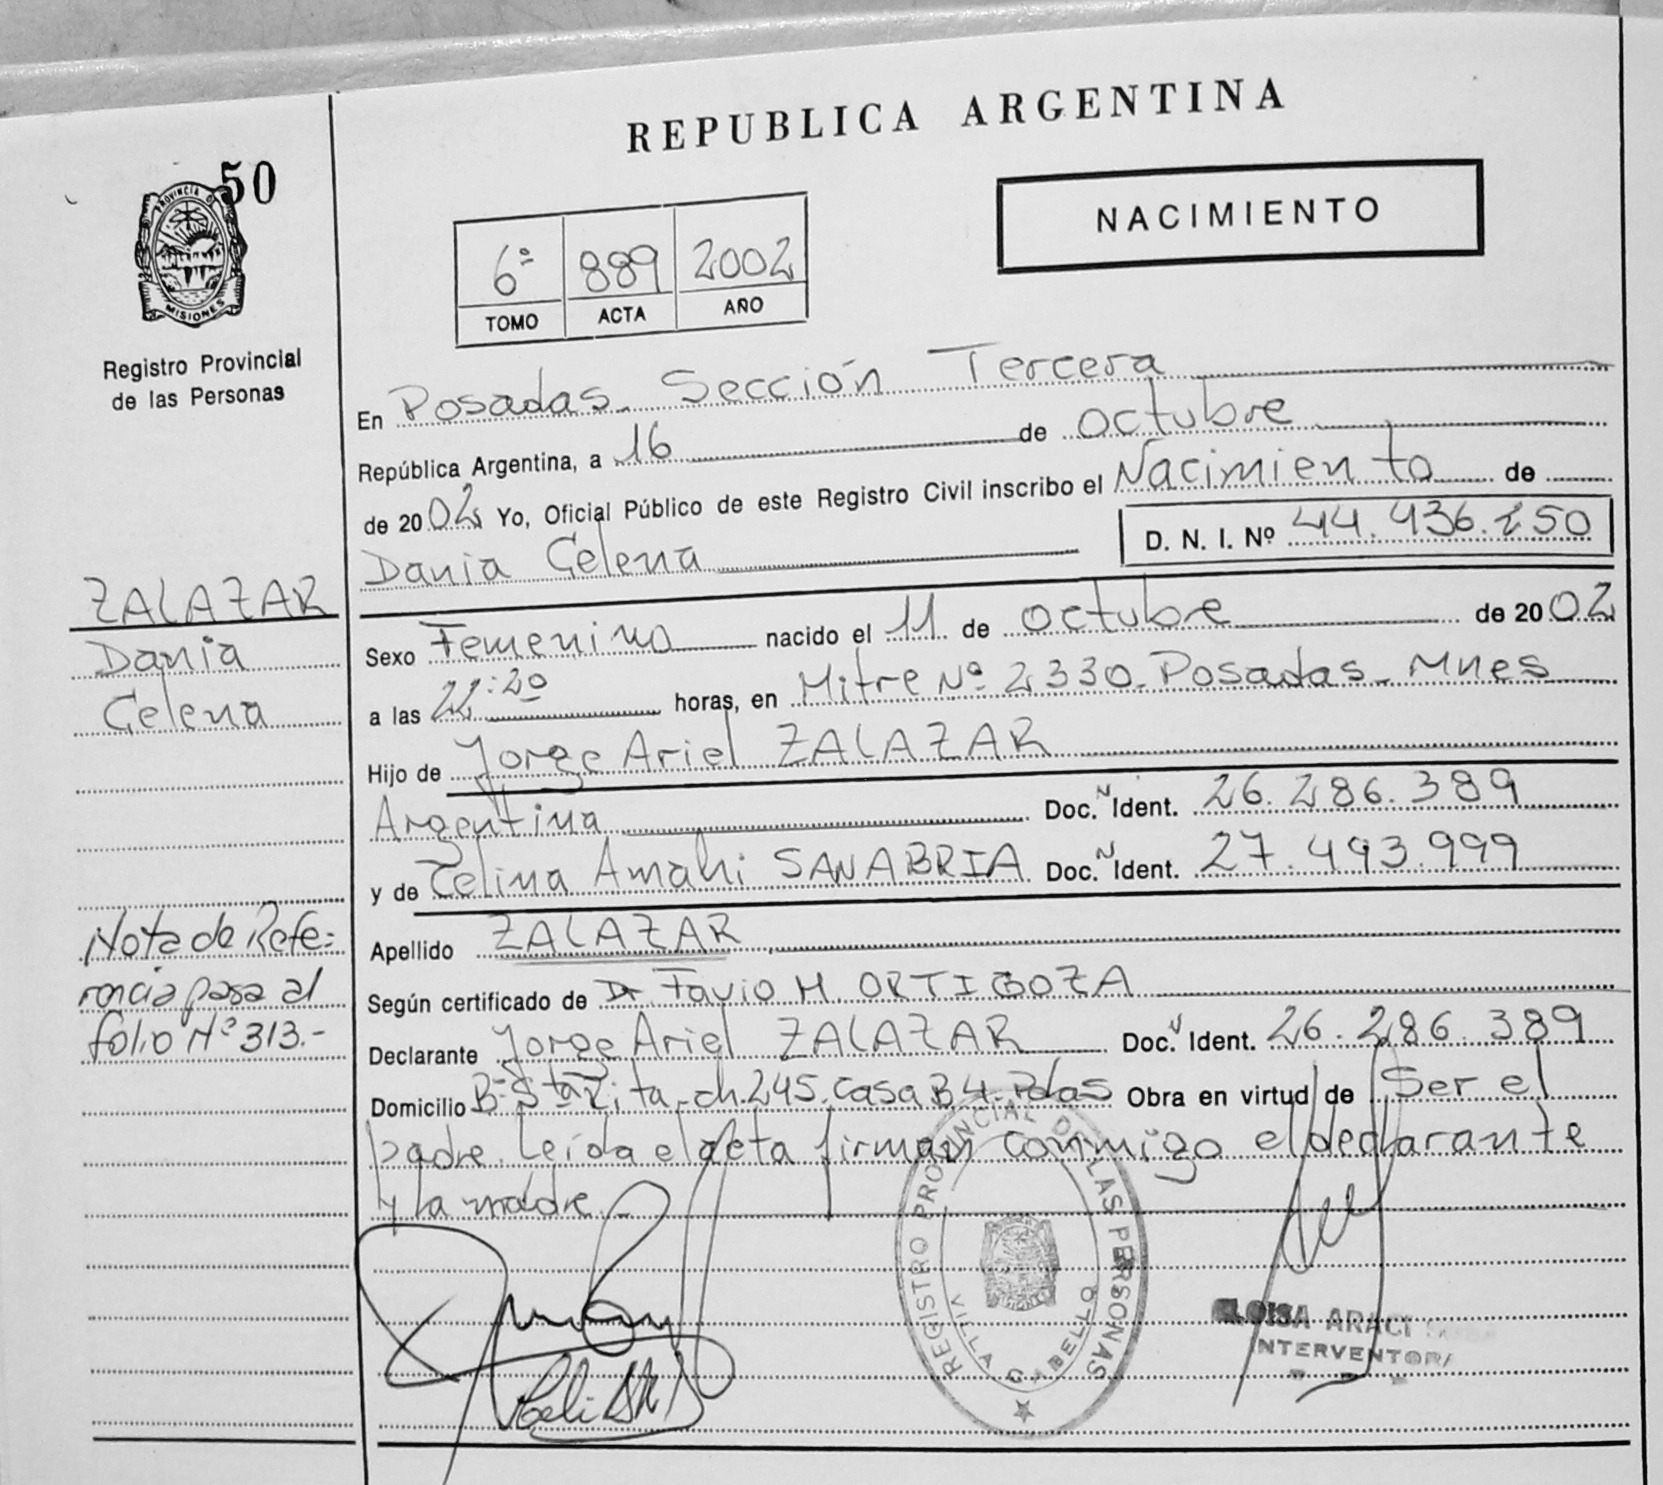 REPUBLICA ARGENTINA
50
PROVINCIA D
MISIONES
Registro Provincial
de las Personas
NACIMIENTO
6º 889 2002
TOMO ACTA AÑO
En Posadas. Sección Tercera
República Argentina, a 16 de octubre
de 2002 Yo, Oficial Público de este Registro Civil inscribo el Nacimiento de
Dania Celena D. N. I. Nº 44.436.250
ZALAZAR
Dania
Celena
Sexo Femenino nacido el 11 de octubre de 2002
a las 22:20 horas, en Mitre Nº 2330. Posadas - Mnes
Hijo de Jorge Ariel ZALAZAR
Argentina Doc. Ident. 26.286.389
y de Celina Amahi SANABRIA Doc. Ident. 27.493.999
Apellido ZALAZAR
Según certificado de Dr Favio M. ORTIGOZA
Declarante Jorge Ariel ZALAZAR Doc. Ident. 26.286.389
Domicilio Bº Sta Rita - ch. 245. Casa B 4. Pdas Obra en virtud de Ser el
padre. Leída el acta firman conmigo el declarante
y la madre.
Nota de Refe-
rencia pasa al
folio Nº 313.-
REGISTRO PROVINCIAL DE LAS PERSONAS
VILLA CABELLO
ELOISA ARACI
INTERVENTORA